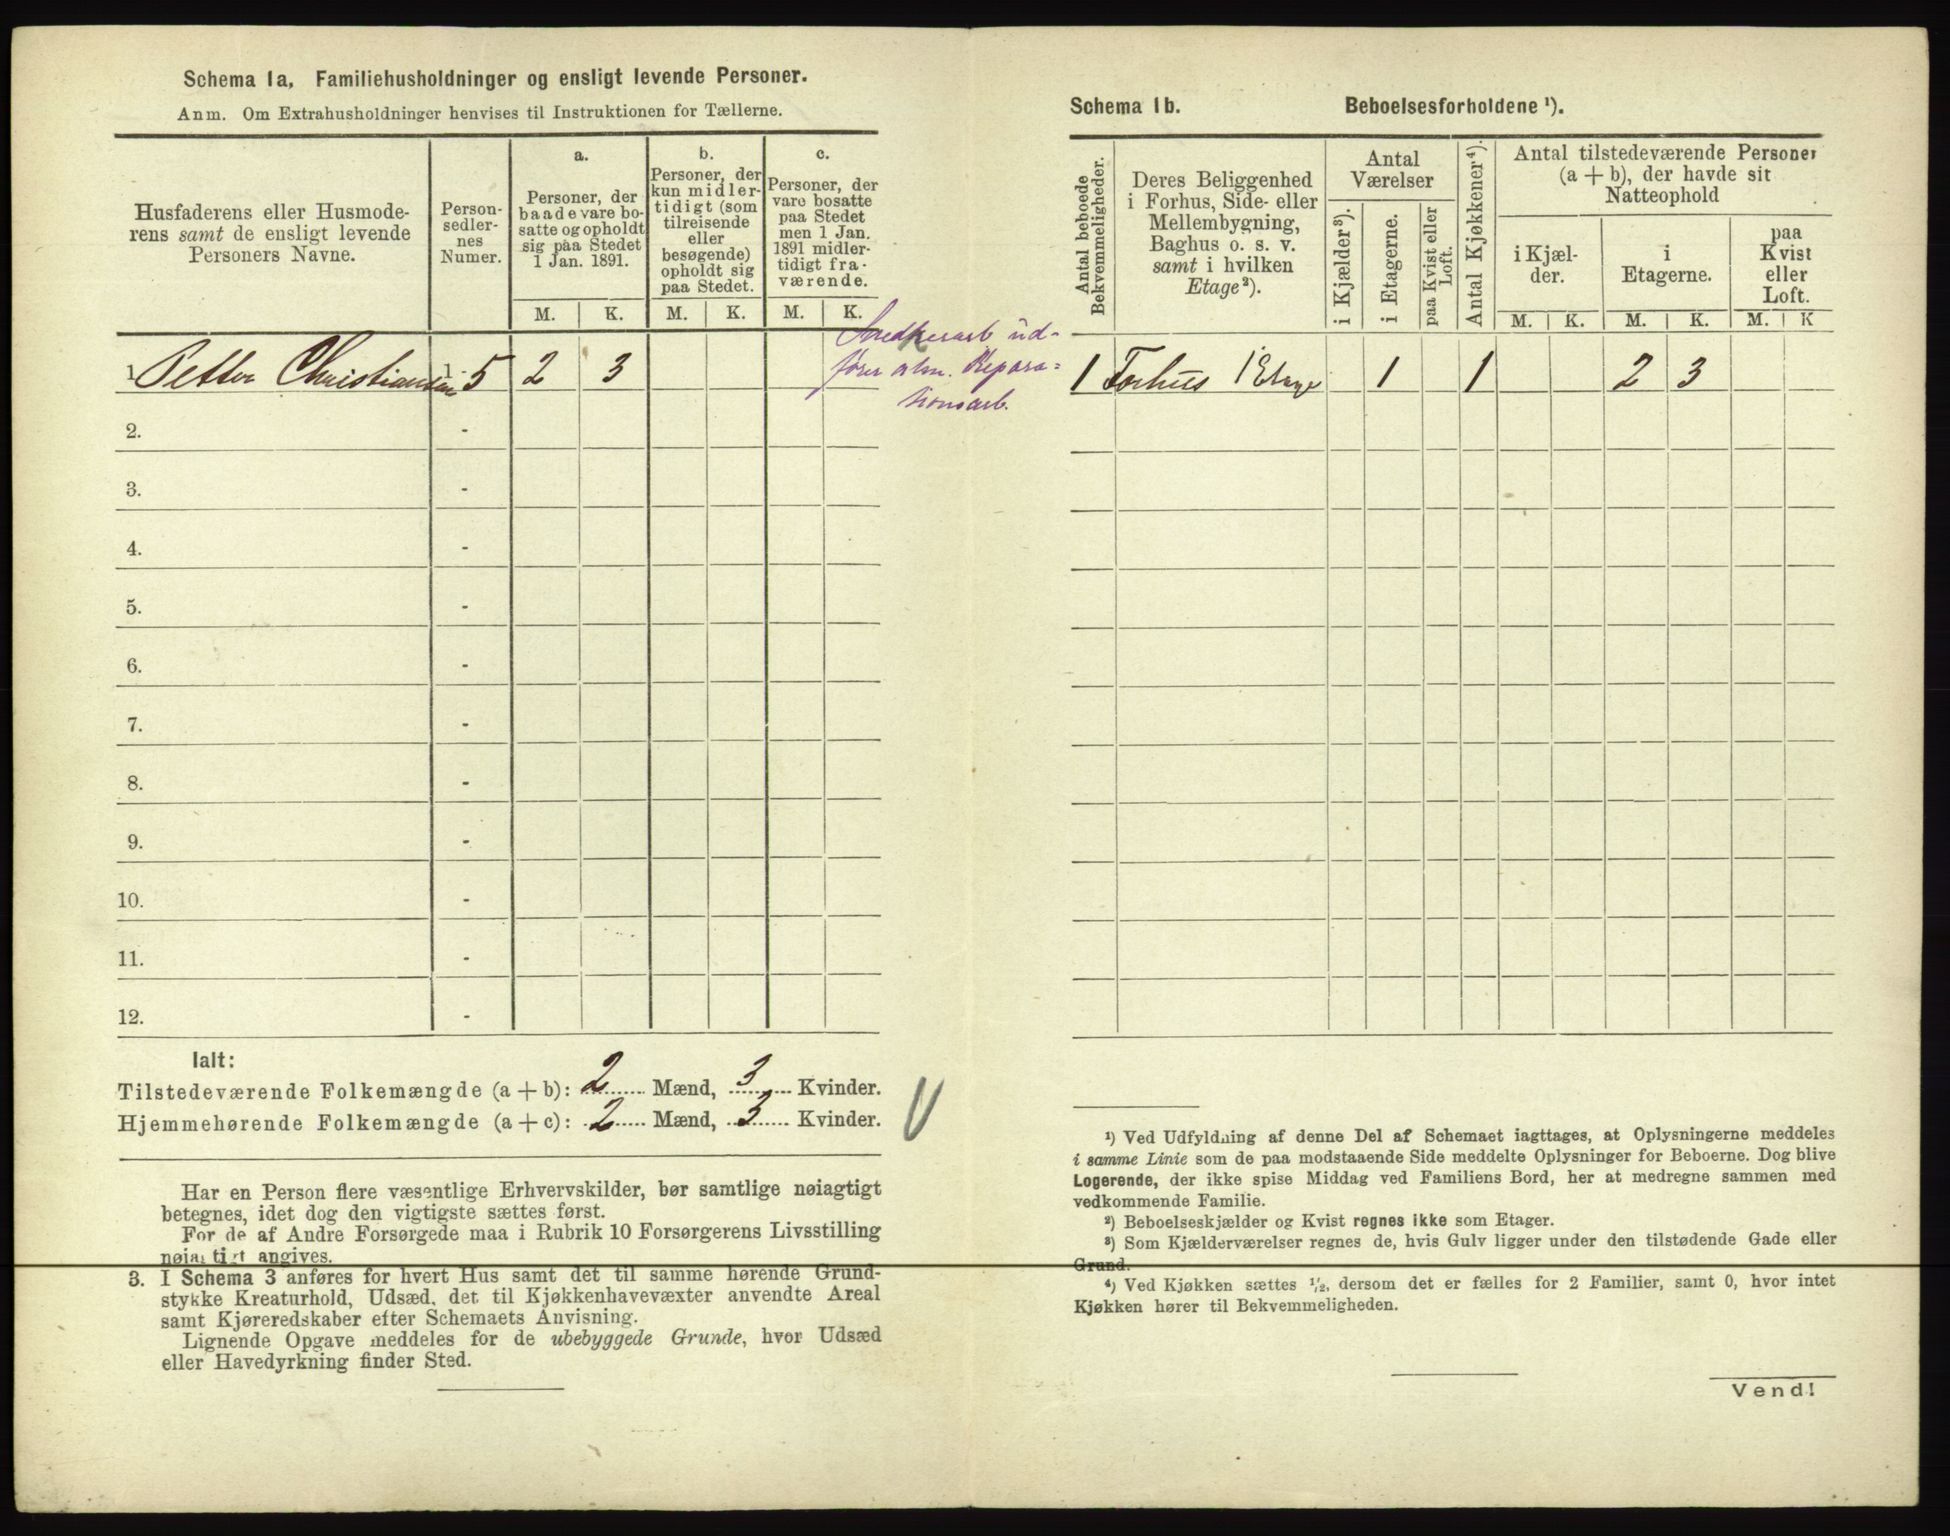 Schema 1a, Familiehusholdninger og ensligt levende Personer.
Anm. Om Extrahusholdninger henvises til Instruktionen for Tællerne.
Husfaderens eller Husmode-
rens samt de ensligt levende
Personers Navne.
Person-
sedler-
nes
Numer.
a.
Personer, der
baade vare bo-
satte og opholdt
sig paa Stedet
1 Jan. 1891.
b.
Personer, der
kun midler-
tidigt (som
tilreisende
eller
besøgende)
opholdt sig
paa Stedet.
c.
Personer, der
vare bosatte
paa Stedet
men 1 Jan.
1891 midler-
tidigt fra-
værende.
M. K. M. K. M. K.
1. Petter Christiansen 1 - 5 2 3
Snedkerarb ud-
fører alm. Repara=
tionsarb.
2. -
3. -
4. -
5. -
6. -
7. -
8. -
9. -
10. -
11. -
12. -
Ialt:
Tilstedeværende Folkemængde (a + b): 2 Mænd, 3 Kvinder.
Hjemmehørende Folkemængde (a + c): 2 Mænd, 3 Kvinder.
Har en Person flere væsentlige Erhvervskilder, bør samtlige nøiagtigt
betegnes, idet dog den vigtigste sættes først.
For de af Andre Forsørgede maa i Rubrik 10 Forsørgerens Livsstilling
nøiagtigt angives.
3. I Schema 3 anføres for hvert Hus samt det til samme hørende Grund-
stykke Kreaturhold, Udsæd, det til Kjøkkenhavevæxter anvendte Areal
samt Kjøreredskaber efter Schemaets Anvisning.
Lignende Opgave meddeles for de ubebyggede Grunde, hvor Udsæd
eller Havedyrkning finder Sted.
Schema 1b. Beboelsesforholdene ¹).
Antal beboede
Bekvemmeligheder.
Deres Beliggenhed
i Forhus, Side- eller
Mellembygning,
Baghus o. s. v.
samt i hvilken
Etage²).
Antal
Værelser
i Kjælder³).
i Etagerne.
paa Kvist eller
Loft.
Antal Kjøkkener⁴).
Antal tilstedeværende Personer
(a + b), der havde sit
Natteophold
i Kjæl-
der.
i
Etagerne.
paa
Kvist
eller
Loft.
M. K. M. K. M. K
1 Forhus 1 Etage 1 1 2 3
¹) Ved Udfyldning af denne Del af Schemaet iagttages, at Oplysningerne meddeles
i samme Linie som de paa modstaaende Side meddelte Oplysninger for Beboerne. Dog blive
Logerende, der ikke spise Middag ved Familiens Bord, her at medregne sammen med
vedkommende Familie.
²) Beboelseskjælder og Kvist regnes ikke som Etager.
³) Som Kjælderværelser regnes de, hvis Gulv ligger under den tilstødende Gade eller
Grund.
⁴) Ved Kjøkken sættes ¹/₂, dersom det er fælles for 2 Familier, samt 0, hvor intet
Kjøkken hører til Bekvemmeligheden.
Vend!